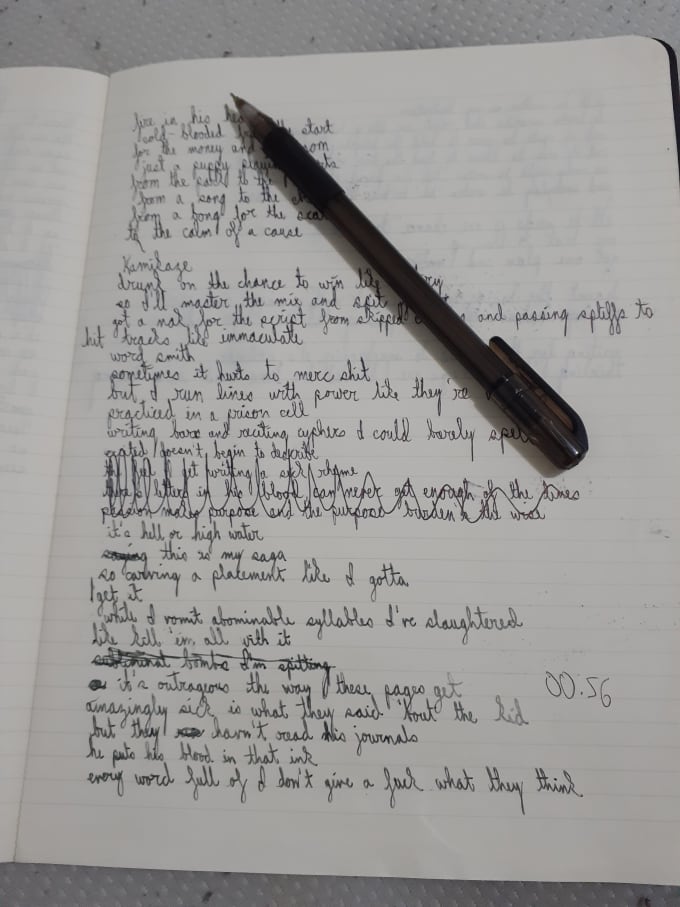 fire in his
cold-blooded the start
for the money and
just a puppy
from the to the
from a song to the
from a bong for the
to the calm of a cause
Kamikaze
drunk on the chance to win
so I'll master the mix and spit
got a nak for the script from skipped and passing spliffs to
hit tracks like immaculate
word smith
sometimes it hurts to merc shit
but I run lines with power like they're
practiced in a prison cell
writing bars and reciting cyphers I could barely spell
doesn't begin to describe
I get writing a sick rhyme
letters in his blood can never get enough of the
passion makes purpose and the purpose in the
it's hell or high water
this is my saga
so carving a placement like I gotta
I get it
while I vomit abominable syllables I've slaughtered
like kill 'em all with it
subliminal bombs I'm spitting
it's outrageous the way these pages get
amazingly sick is what they said 'bout the kid
but they havn't read his journals
he puts his blood in that ink
every word full of I don't give a fuck what they think
00:56